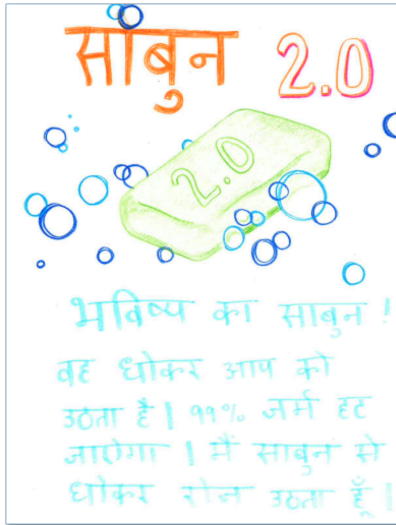 साबुन 2.0
2.0
भविष्य का साबुन !
वह धोकर आप को
उठता है | ११% जर्म हट
जाऐगा | मैं साबुन से
धोकर रोज उठता हूँ |